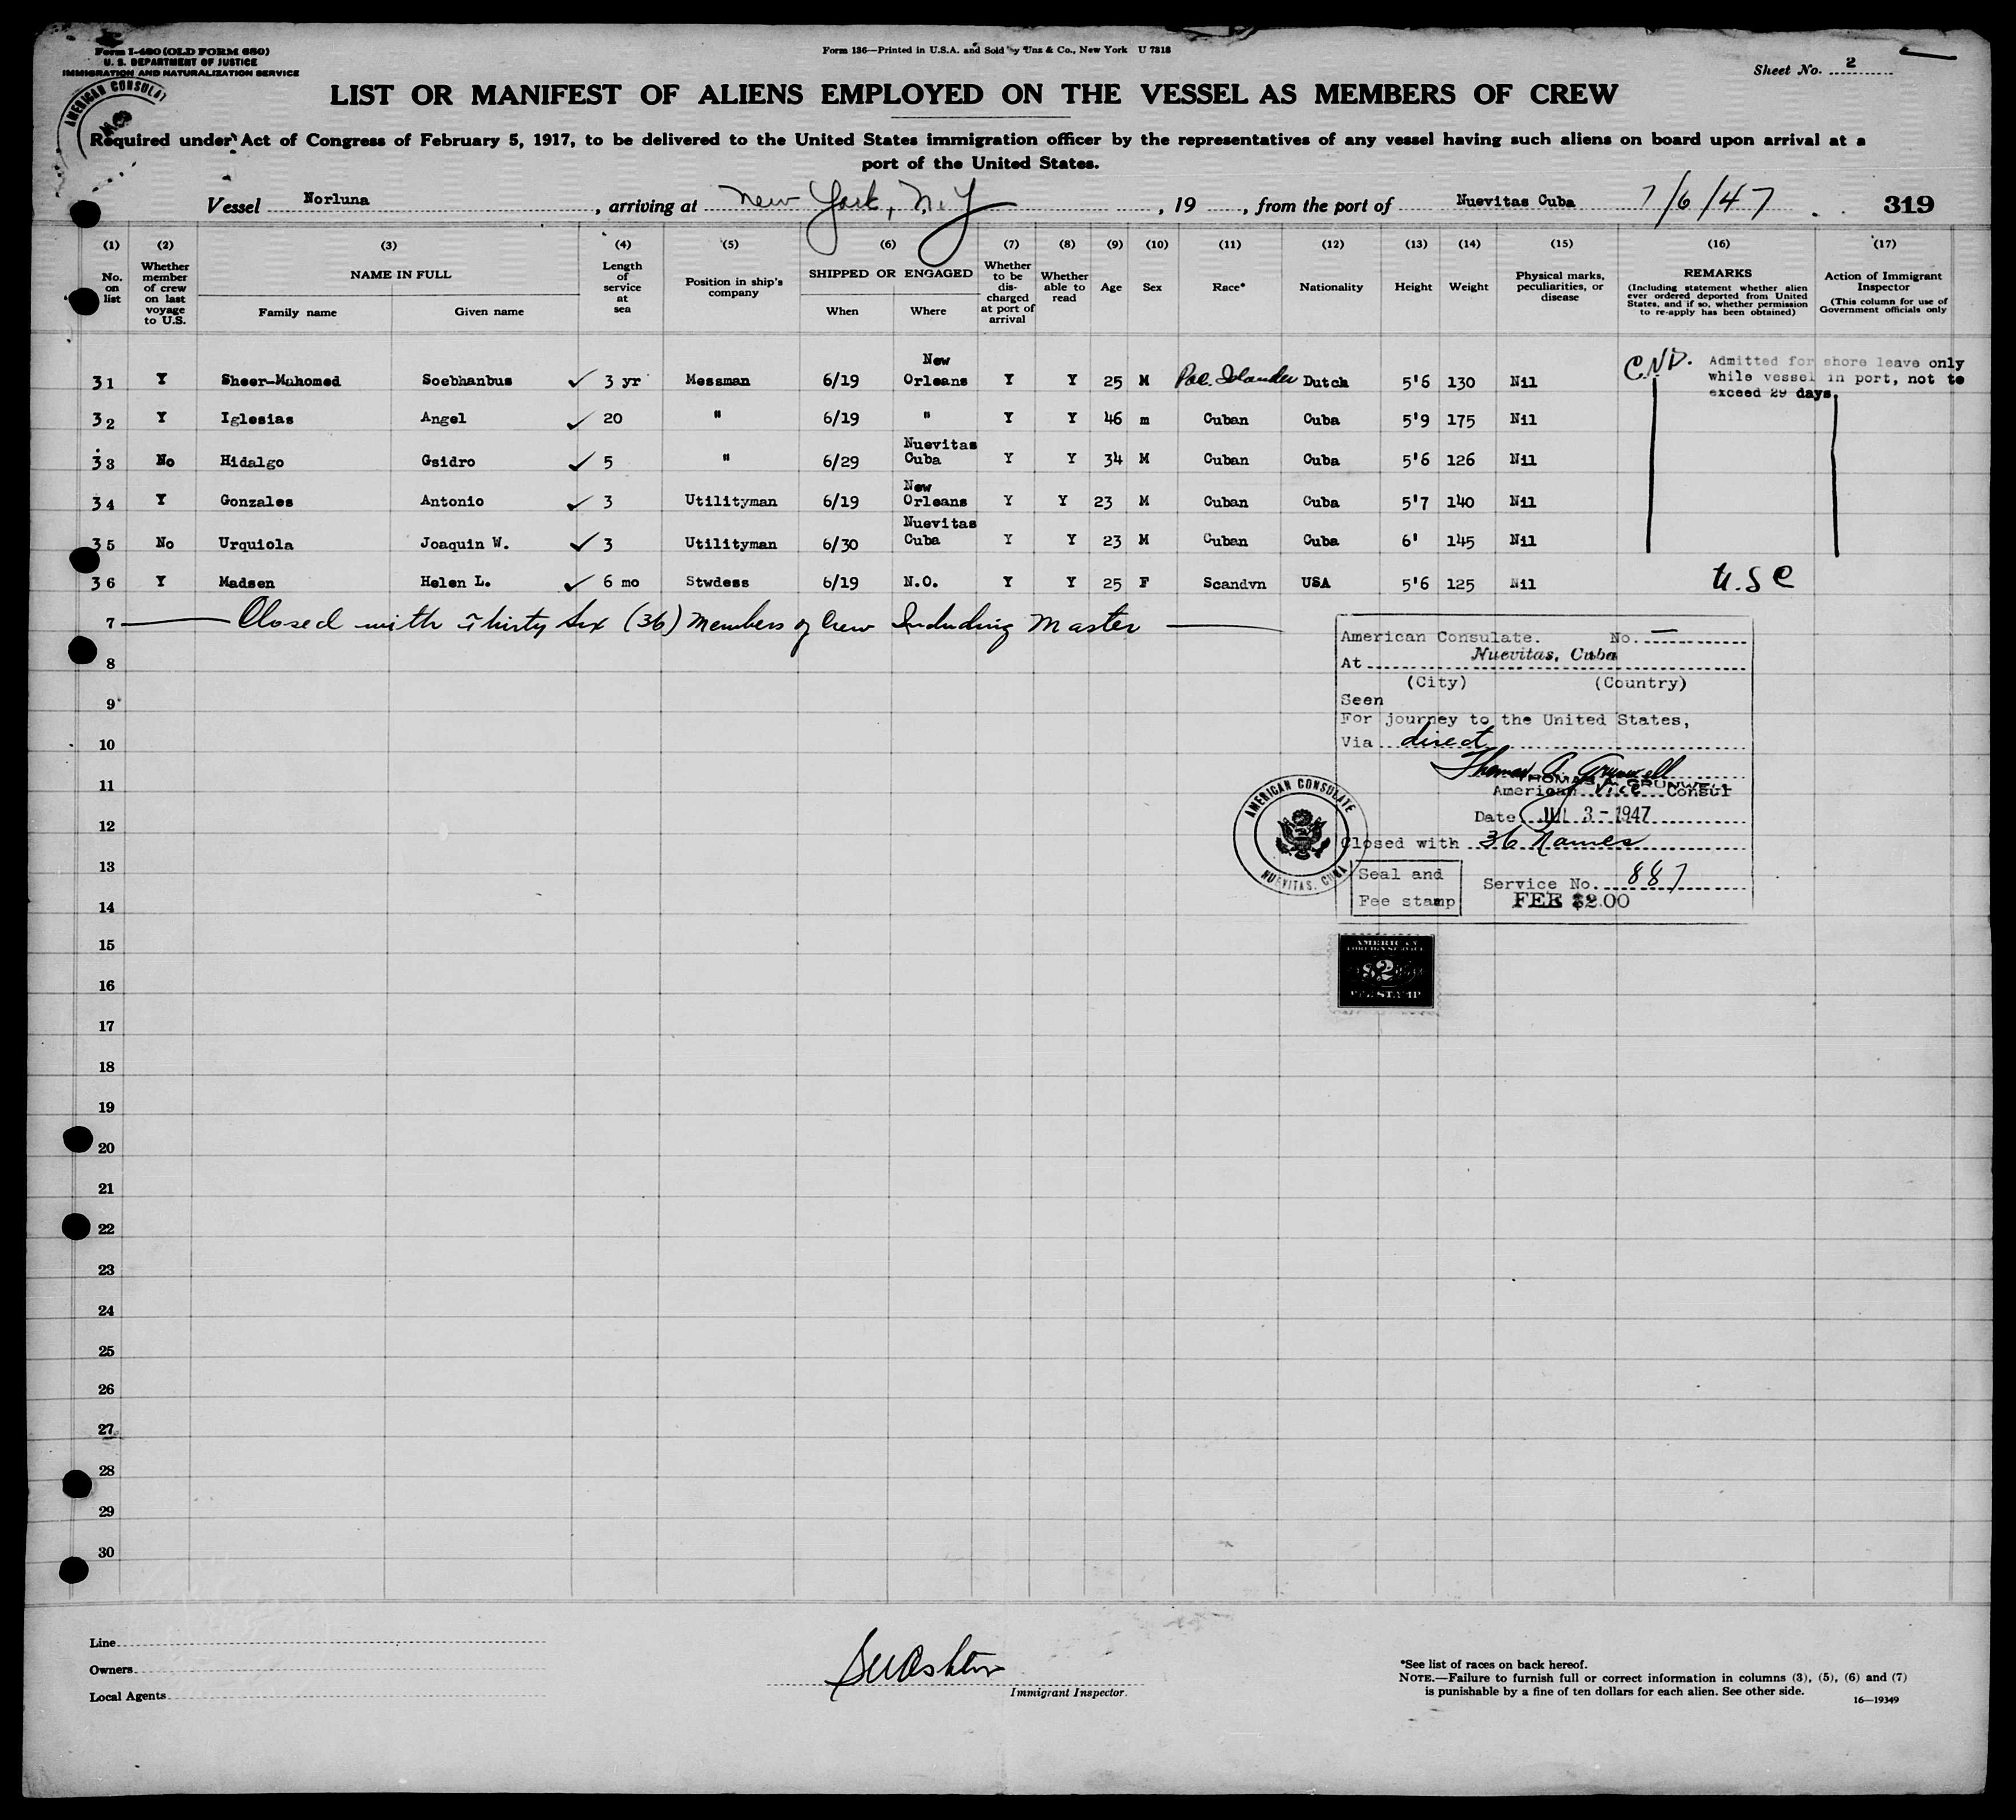 Form I-480 (OLD FORM 680)
U. S. DEPARTMENT OF JUSTICE
IMMIGRATION AND NATURALIZATION SERVICE
Form 136—Printed in U.S.A. and Sold by Unz & Co., New York U 7318
Sheet No. 2
AMERICAN CONSULAT
LIST OR MANIFEST OF ALIENS EMPLOYED ON THE VESSEL AS MEMBERS OF CREW
Required under Act of Congress of February 5, 1917, to be delivered to the United States immigration officer by the representatives of any vessel having such aliens on board upon arrival at a
port of the United States.
Vessel Norluna , arriving at New York, N.Y , 19 , from the port of Nuevitas Cuba 7/6/47 319
(1) (2) (3) (4) (5) (6) (7) (8) (9) (10) (11) (12) (13) (14) (15) (16) (17)
No. on list
Whether member of crew on last voyage to U.S.
NAME IN FULL
Family name Given name
Length of service at sea
Position in ship's company
SHIPPED OR ENGAGED
When Where
Whether to be discharged at port of arrival
Whether able to read
Age
Sex
Race*
Nationality
Height
Weight
Physical marks, peculiarities, or disease
REMARKS
(Including statement whether alien ever ordered deported from United States, and if so, whether permission to re-apply has been obtained)
Action of Immigrant Inspector
(This column for use of Government officials only
31 Y Sheer-Mahomed Soebhanbus ✓ 3 yr Messman 6/19 New Orleans Y Y 25 M Pac. Islander Dutch 5'6 130 Nil
Admitted for shore leave only
while vessel in port, not to
exceed 29 days.
32 Y Iglesias Angel ✓ 20 " 6/19 " Y Y 46 m Cuban Cuba 5'9 175 Nil
33 No Hidalgo Gsidro ✓ 5 " 6/29 Nuevitas Cuba Y Y 34 M Cuban Cuba 5'6 126 Nil
34 Y Gonzales Antonio ✓ 3 Utilityman 6/19 New Orleans Y Y 23 M Cuban Cuba 5'7 140 Nil
35 No Urquiola Joaquin W. ✓ 3 Utilityman 6/30 Nuevitas Cuba Y Y 23 M Cuban Cuba 6' 145 Nil
36 Y Madsen Helen L. ✓ 6 mo Stwdess 6/19 N.O. Y Y 25 F Scandvn USA 5'6 125 Nil U.S C
7 Closed with Thirty Six (36) Members of Crew Including Master
8
9
10
11
12
13
14
15
16
17
18
19
20
21
22
23
24
25
26
27
28
29
30
American Consulate. No. —
At Nuevitas, Cuba
(City) (Country)
Seen
For journey to the United States,
Via direct
Thomas A. Grunwell
THOMAS A. GRUNWELL
American Vice Consul
Date JUL 3 - 1947
Closed with 36 Names
Seal and
Fee stamp
Service No. 887
FEE $2.00
AMERICAN CONSULATE
NUEVITAS, CUBA
AMERICAN
FOREIGN SERVICE
$2
FEE STAMP
Line
Owners
Local Agents
Immigrant Inspector.
*See list of races on back hereof.
NOTE.—Failure to furnish full or correct information in columns (3), (5), (6) and (7)
is punishable by a fine of ten dollars for each alien. See other side.
16—19349